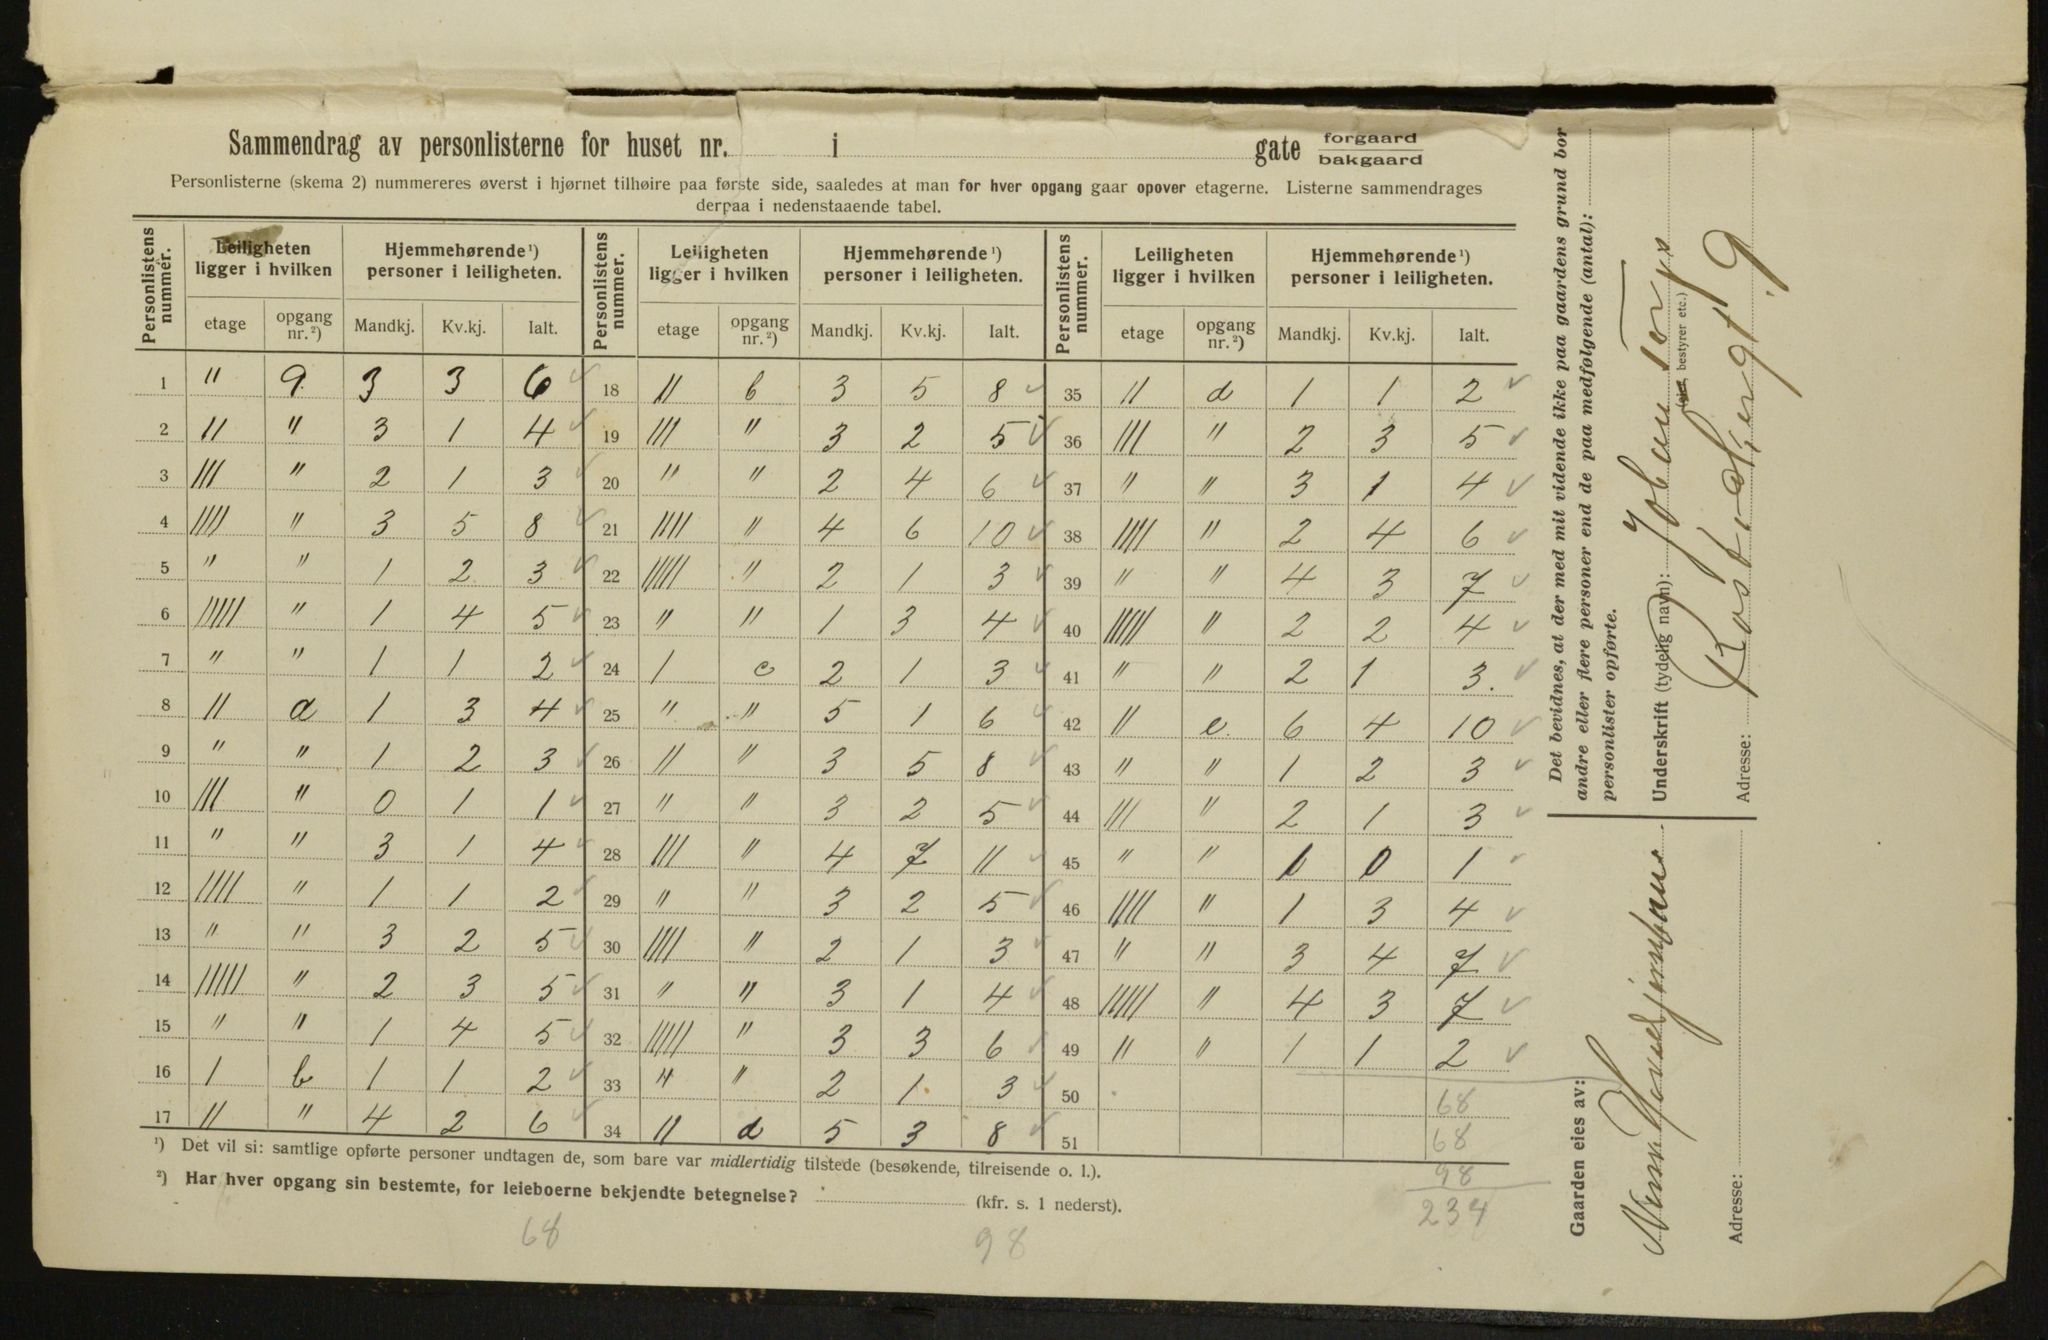 Sammendrag av personlisterne for huset nr. i gate forgaard bakgaard
Personlisterne (skema 2) nummereres øverst i hjørnet tilhøire paa første side, saaledes at man for hver opgang gaar opover etagerne. Listerne sammendrages
derpaa i nedenstaaende tabel.
Personlistens nummer. Leiligheten ligger i hvilken Hjemmehørende ¹) personer i leiligheten. Personlistens nummer. Leiligheten ligger i hvilken Hjemmehørende ¹) personer i leiligheten. Personlistens nummer. Leiligheten ligger i hvilken Hjemmehørende ¹) personer i leiligheten.
etage opgang nr. ²) Mandkj. Kv.kj. Ialt. etage opgang nr. ²) Mandkj. Kv.kj. Ialt. etage opgang nr. ²) Mandkj. Kv.kj. Ialt.
1 || 9 3 3 6 ✓ 18 || b 3 5 8 ✓ 35 || d 1 1 2 ✓
2 || " 3 1 4 ✓ 19 ||| " 3 2 5 ✓ 36 ||| " 2 3 5 ✓
3 ||| " 2 1 3 ✓ 20 " " 2 4 6 ✓ 37 " " 3 1 4 ✓
4 |||| " 3 5 8 ✓ 21 |||| " 4 6 10 ✓ 38 |||| " 2 4 6 ✓
5 " " 1 2 3 ✓ 22 ||||| " 2 1 3 ✓ 39 " " 4 3 7 ✓
6 ||||| " 1 4 5 ✓ 23 " " 1 3 4 ✓ 40 ||||| " 2 2 4 ✓
7 " " 1 1 2 ✓ 24 1 c 2 1 3 ✓ 41 " " 2 1 3. ✓
8 || a 1 3 4 ✓ 25 " " 5 1 6 ✓ 42 || e. 6 4 10 ✓
9 " " 1 2 3 ✓ 26 || " 3 5 8 ✓ 43 " " 1 2 3 ✓
10 ||| " 0 1 1 ✓ 27 " " 3 2 5 ✓ 44 ||| " 2 1 3 ✓
11 " " 3 1 4 ✓ 28 ||| " 4 7 11 ✓ 45 " " 1 0 1 ✓
12 |||| " 1 1 2 ✓ 29 " " 3 2 5 ✓ 46 |||| " 1 3 4 ✓
13 " " 3 2 5 ✓ 30 |||| " 2 1 3 ✓ 47 " " 3 4 7 ✓
14 ||||| " 2 3 5 ✓ 31 " " 3 1 4 ✓ 48 ||||| " 4 3 7 ✓
15 " " 1 4 5 ✓ 32 ||||| " 3 3 6 ✓ 49 " " 1 1 2 ✓
16 1 b 1 1 2 ✓ 33 " " 2 1 3 ✓ 50 68
17 || " 4 2 6 ✓ 34 || d 5 3 8 ✓ 51 68
98
234
¹) Det vil si: samtlige opførte personer undtagen de, som bare var midlertidig tilstede (besøkende, tilreisende o. l.).
²) Har hver opgang sin bestemte, for leieboerne bekjendte betegnelse? (kfr. s. 1 nederst).
68 98
Det bevidnes, at der med mit vidende ikke paa gaardens grund bor
andre eller flere personer end de paa medfølgende (antal):
personlister opførte.
Underskrift (tydelig navn):
(eier, bestyrer etc.)
Adresse: 9
Gaarden eies av:
Adresse: